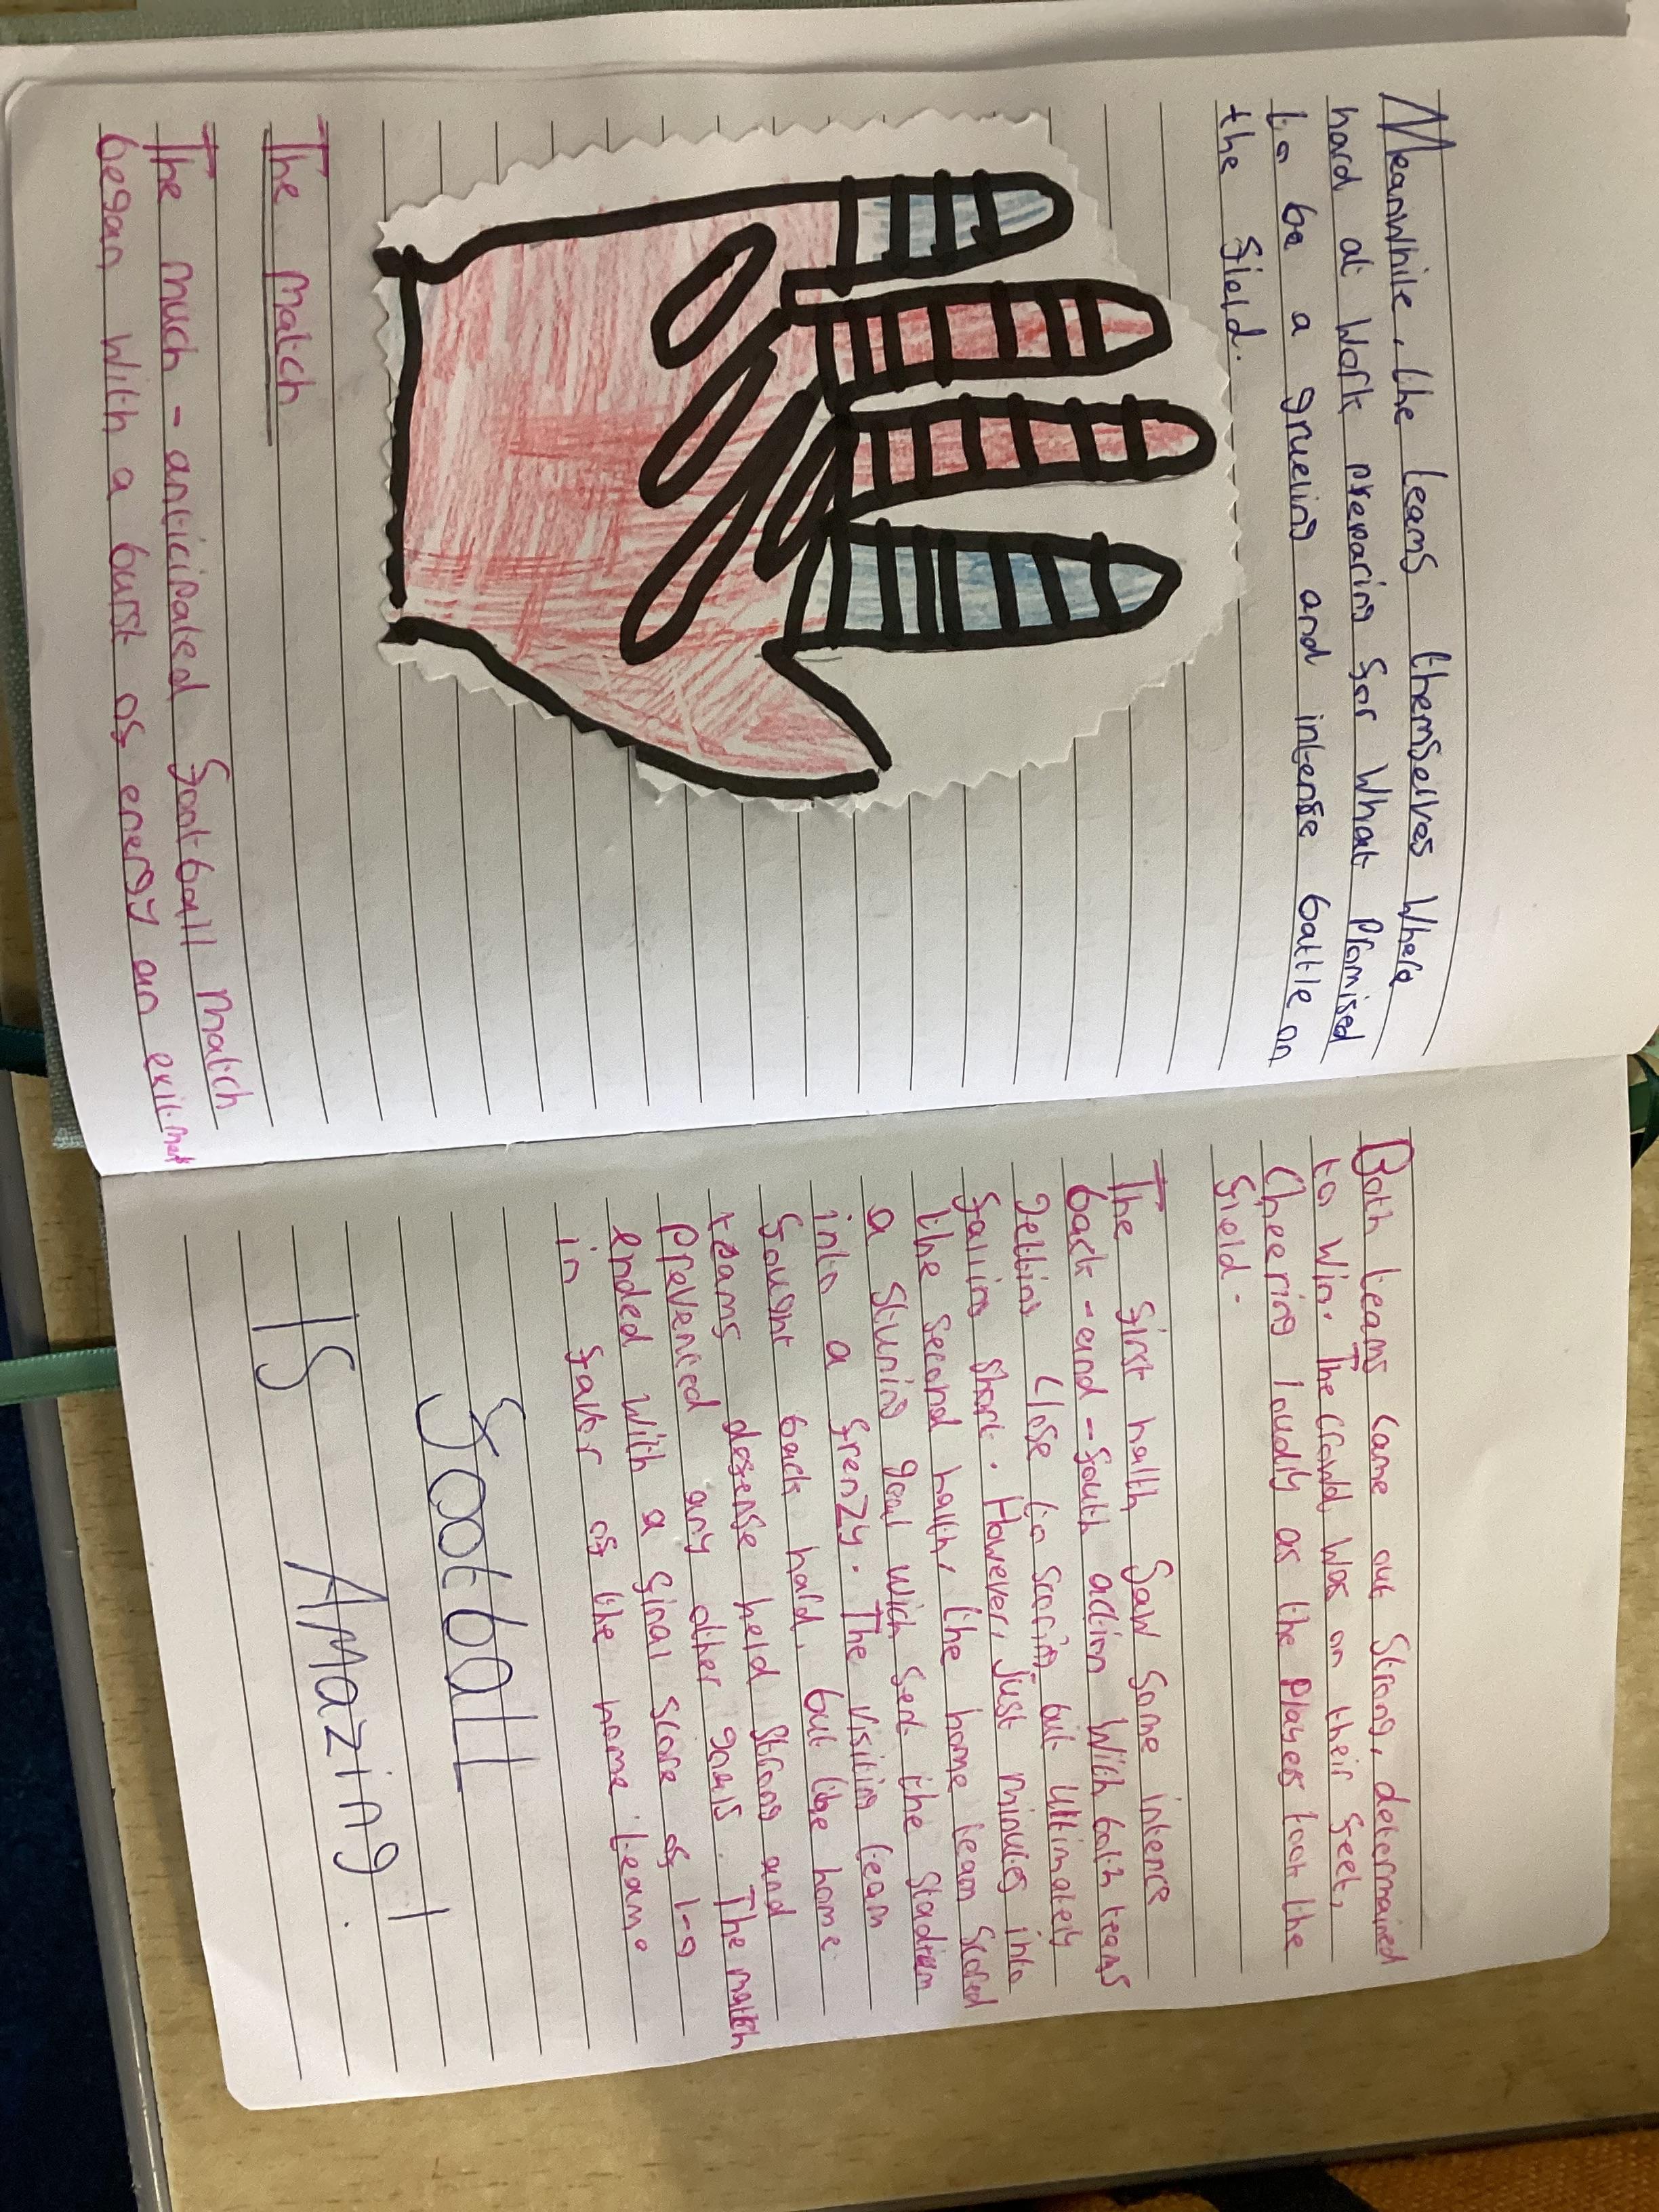 Meanwhile, the teams themselves where
hard at work preparing for what promised
to be a grueling and intense battle on
the field.
The match
The much-anticipated football match
began with a burst of energy an exitment
Both teams came out strong, determained
to win. The crowd was on their feet,
Cheering loudly as the players took the
field.
The first halth saw some intence
back-and-fouth action with both teams
getting close to scoring but ultimately
falling short. However, just minutes into
the second halth, the home team scored
a stuning goal wich sent the stadium
into a frenzy. The visiting team
fought back hard, but the home
teams defense held strong and
prevented any other goals. The match
ended with a final score of 1-0
in favor of the home team.
football
IS AMazing!